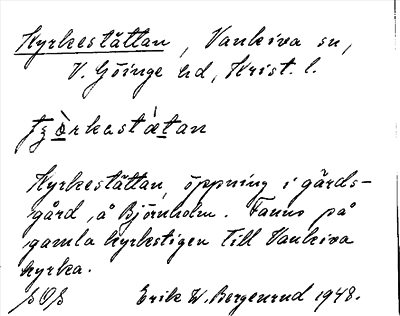 Kyrkestättan, Vankiva sn,
V. Göinge hd, Krist. l.
Kyrkestättan, öppning i gårds-
gård, å Björnholm. Fanns på
gamla kyrkstigen till Vankiva
kyrka.
Erik W. Bergenrud 1948.